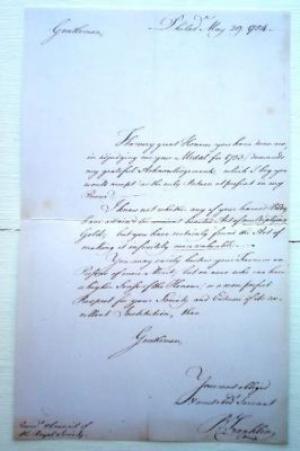 Philad.ª May 29. 1754.
Gentlemen,
The very great Honour you have done me,
in adjudging me your Medal for 1753, demands
my grateful Acknowledgements, which I beg you
would accept as the only Return at present in my
Power.
I know not whether any of your learned Body
have attain'd the ancient boasted Art of multiplying
Gold; but you have certainly found the Art of
making it infinitely more valuable.
You may easily bestow your Favours on
Persons of more Merit; but on none who can have
a higher Sense of the Honour, or a more perfect
Respect for your Society and Esteem of its ex-
cellent Institution, than
Gentlemen,
Your most obliged
& most obd.t Servant
B Franklin
Council of
the Royal Society.